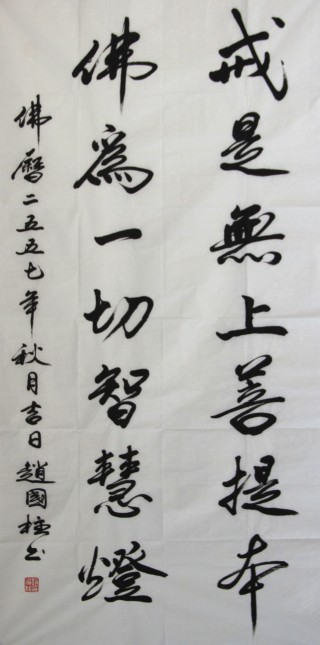 戒是無上菩提本
佛為一切智慧燈
佛曆二五五七年秋月吉日趙國柱书